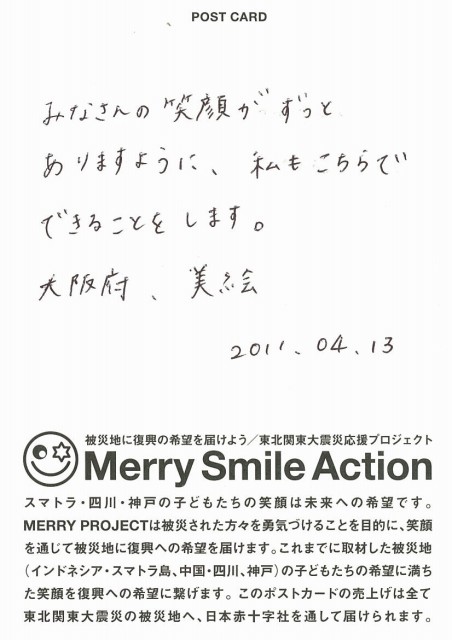 POST CARD
みなさんの笑顔がずっと
ありますように、私もこちらで
できることをします。
大阪府、美絵
2011.04.13
被災地に復興の希望を届けよう／東北関東大震災応援プロジェクト
Merry Smile Action
スマトラ・四川・神戸の子どもたちの笑顔は未来への希望です。
MERRY PROJECTは被災された方々を勇気づけることを目的に、笑顔
を通じて被災地に復興への希望を届けます。これまでに取材した被災地
（インドネシア・スマトラ島、中国・四川、神戸）の子どもたちの希望に満ち
た笑顔を復興への希望に繋げます。このポストカードの売上げは全て
東北関東大震災の被災地へ、日本赤十字社を通して届けられます。